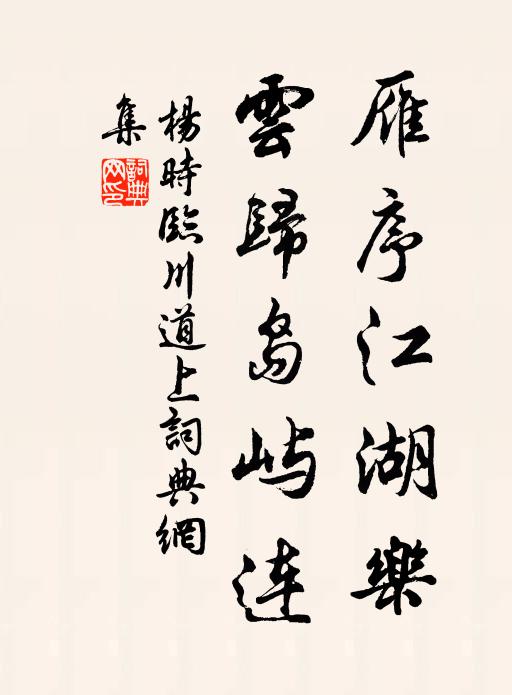 雁序江湖樂
雲歸島屿連
楊時臨川道上詞典網
集
詞典網印